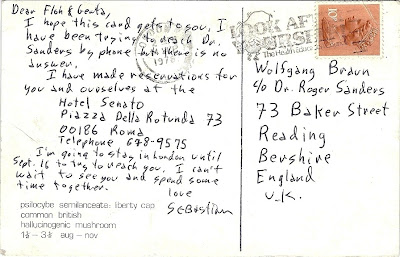 Dear Floh & Genta,
I hope this card gets to you. I
have been trying to reach Dr.
Sanders by phone but there is no
answer.
I have made reservations for
you and ourselves at the
Hotel Senato
Piazza Della Rotunda 73
00186 Roma
Telephone 678-9575
I'm going to stay in London until
Sept. 16 to try to reach you. I can't
wait to see you and spend some
time together.
love
Sebastian
psilocybe semilanceata: liberty cap
common british
hallucinogenic mushroom
aug – nov
LOOK AF
The Health Educa
Wolfgang Braun
c/o Dr. Roger Sanders
73 Baker Street
Reading
Bershire
England
U.K.